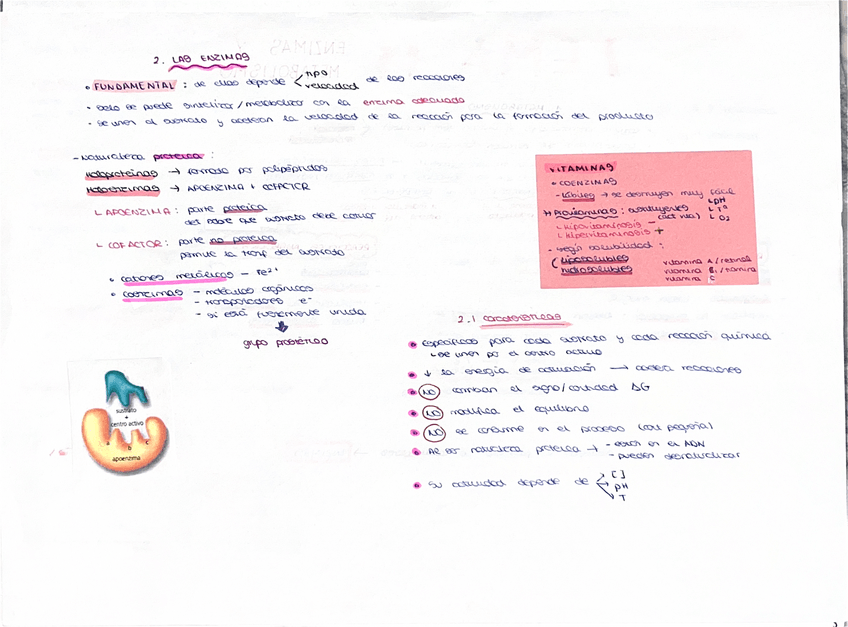 2. LAS ENZIMAS
• FUNDAMENTAL: de ellas depende < tipo
velocidad de las reacciones
- solo se puede sintetizar/metabolizar con la enzima adecuada
- se unen al sustrato y aceleran la velocidad de la reacción para la formación del producto
- Naturaleza proteica:
Holoproteínas → formado por polipéptidos
Holoenzimas → APOENZIMA + COFACTOR
APOENZIMA: parte proteica
del sustrato debe
COFACTOR: parte no proteica
permite la del sustrato
• cationes metálicos - Fe²⁺
• coenzimas - moléculas orgánicas
- transportadores e⁻
- si está fuertemente unida
grupo prostético
sustrato
+
centro activo
a b c
apoenzima
VITAMINAS
• COENZIMAS
- Lábiles → se destruyen muy fácil
pH
Tª
O₂
Provitaminas:
Hipovitaminosis -
Hipervitaminosis +
- según solubilidad:
liposolubles
hidrosolubles
vitamina A/retinol
vitamina B₁/tiamina
vitamina C
2.1 características
• Específicas para cada sustrato y cada reacción química
se unen por el centro activo
• ↓ la energía de activación → acelera reacciones
• NO cambian el signo/cantidad ΔG
• NO modifica el equilibrio
• NO se consume en el proceso (cant pequeña)
• Al ser naturaleza proteica → - están en el ADN
- pueden desnaturalizar
• Su actividad depende de [ ]
pH
T